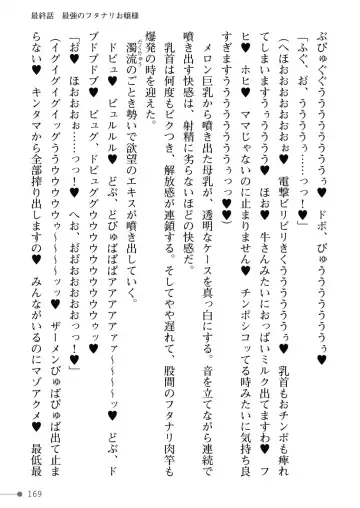 最終話　最強のフタナリお嬢様
ぶぴゅぐぐううううううう♥　ドボ、びゅううううううう♥
「ふぐ、お、うううぅ……っっ！♥
（へほおおおおおおぉ♥　電撃ビリビリきくううううううぅ♥　乳首もおチンポも痺れ
てしまいますうぅうううう♥　ほお♥　牛さんみたいにおっぱいミルク出てますわ♥　フ
ヒ♥　ホヒ♥　ママじゃないのに止まりません♥　チンポシコッてる時みたいに気持ち良
すぎますううううううううぅっっ♥♥）
　メロン巨乳から噴き出た母乳が、透明なケースを真っ白にする。音を立てながら連続で
噴き出す快感は、射精に劣らないほどの快感だ。
　乳首は何度もビクつき、解放感が連鎖する。そしてやや遅れて、股間のフタナリ肉竿も
爆発の時を迎えた。
　濁流のごとき勢いで欲望のエキスが噴き出していく。
　ドビュ♥　ビュルルル♥　どぷ、どびゅばばばアアアアアァァ～～～～ッ♥　どぷ、ド
プドプドプ♥　ビュグ、ドビュググウウウウウウウウウウゥッ♥
「お♥　ほおおおぉ……っっ！♥　へお、おおおおおおお……っ！♥」
（イグイグイグイッグううウウウウウゥ～～～ッッ♥　ザーメンびゅばびゅば出て止ま
らない♥　キンタマから全部搾り出しますの♥　みんながいるのにマゾアクメ♥　最低最
169